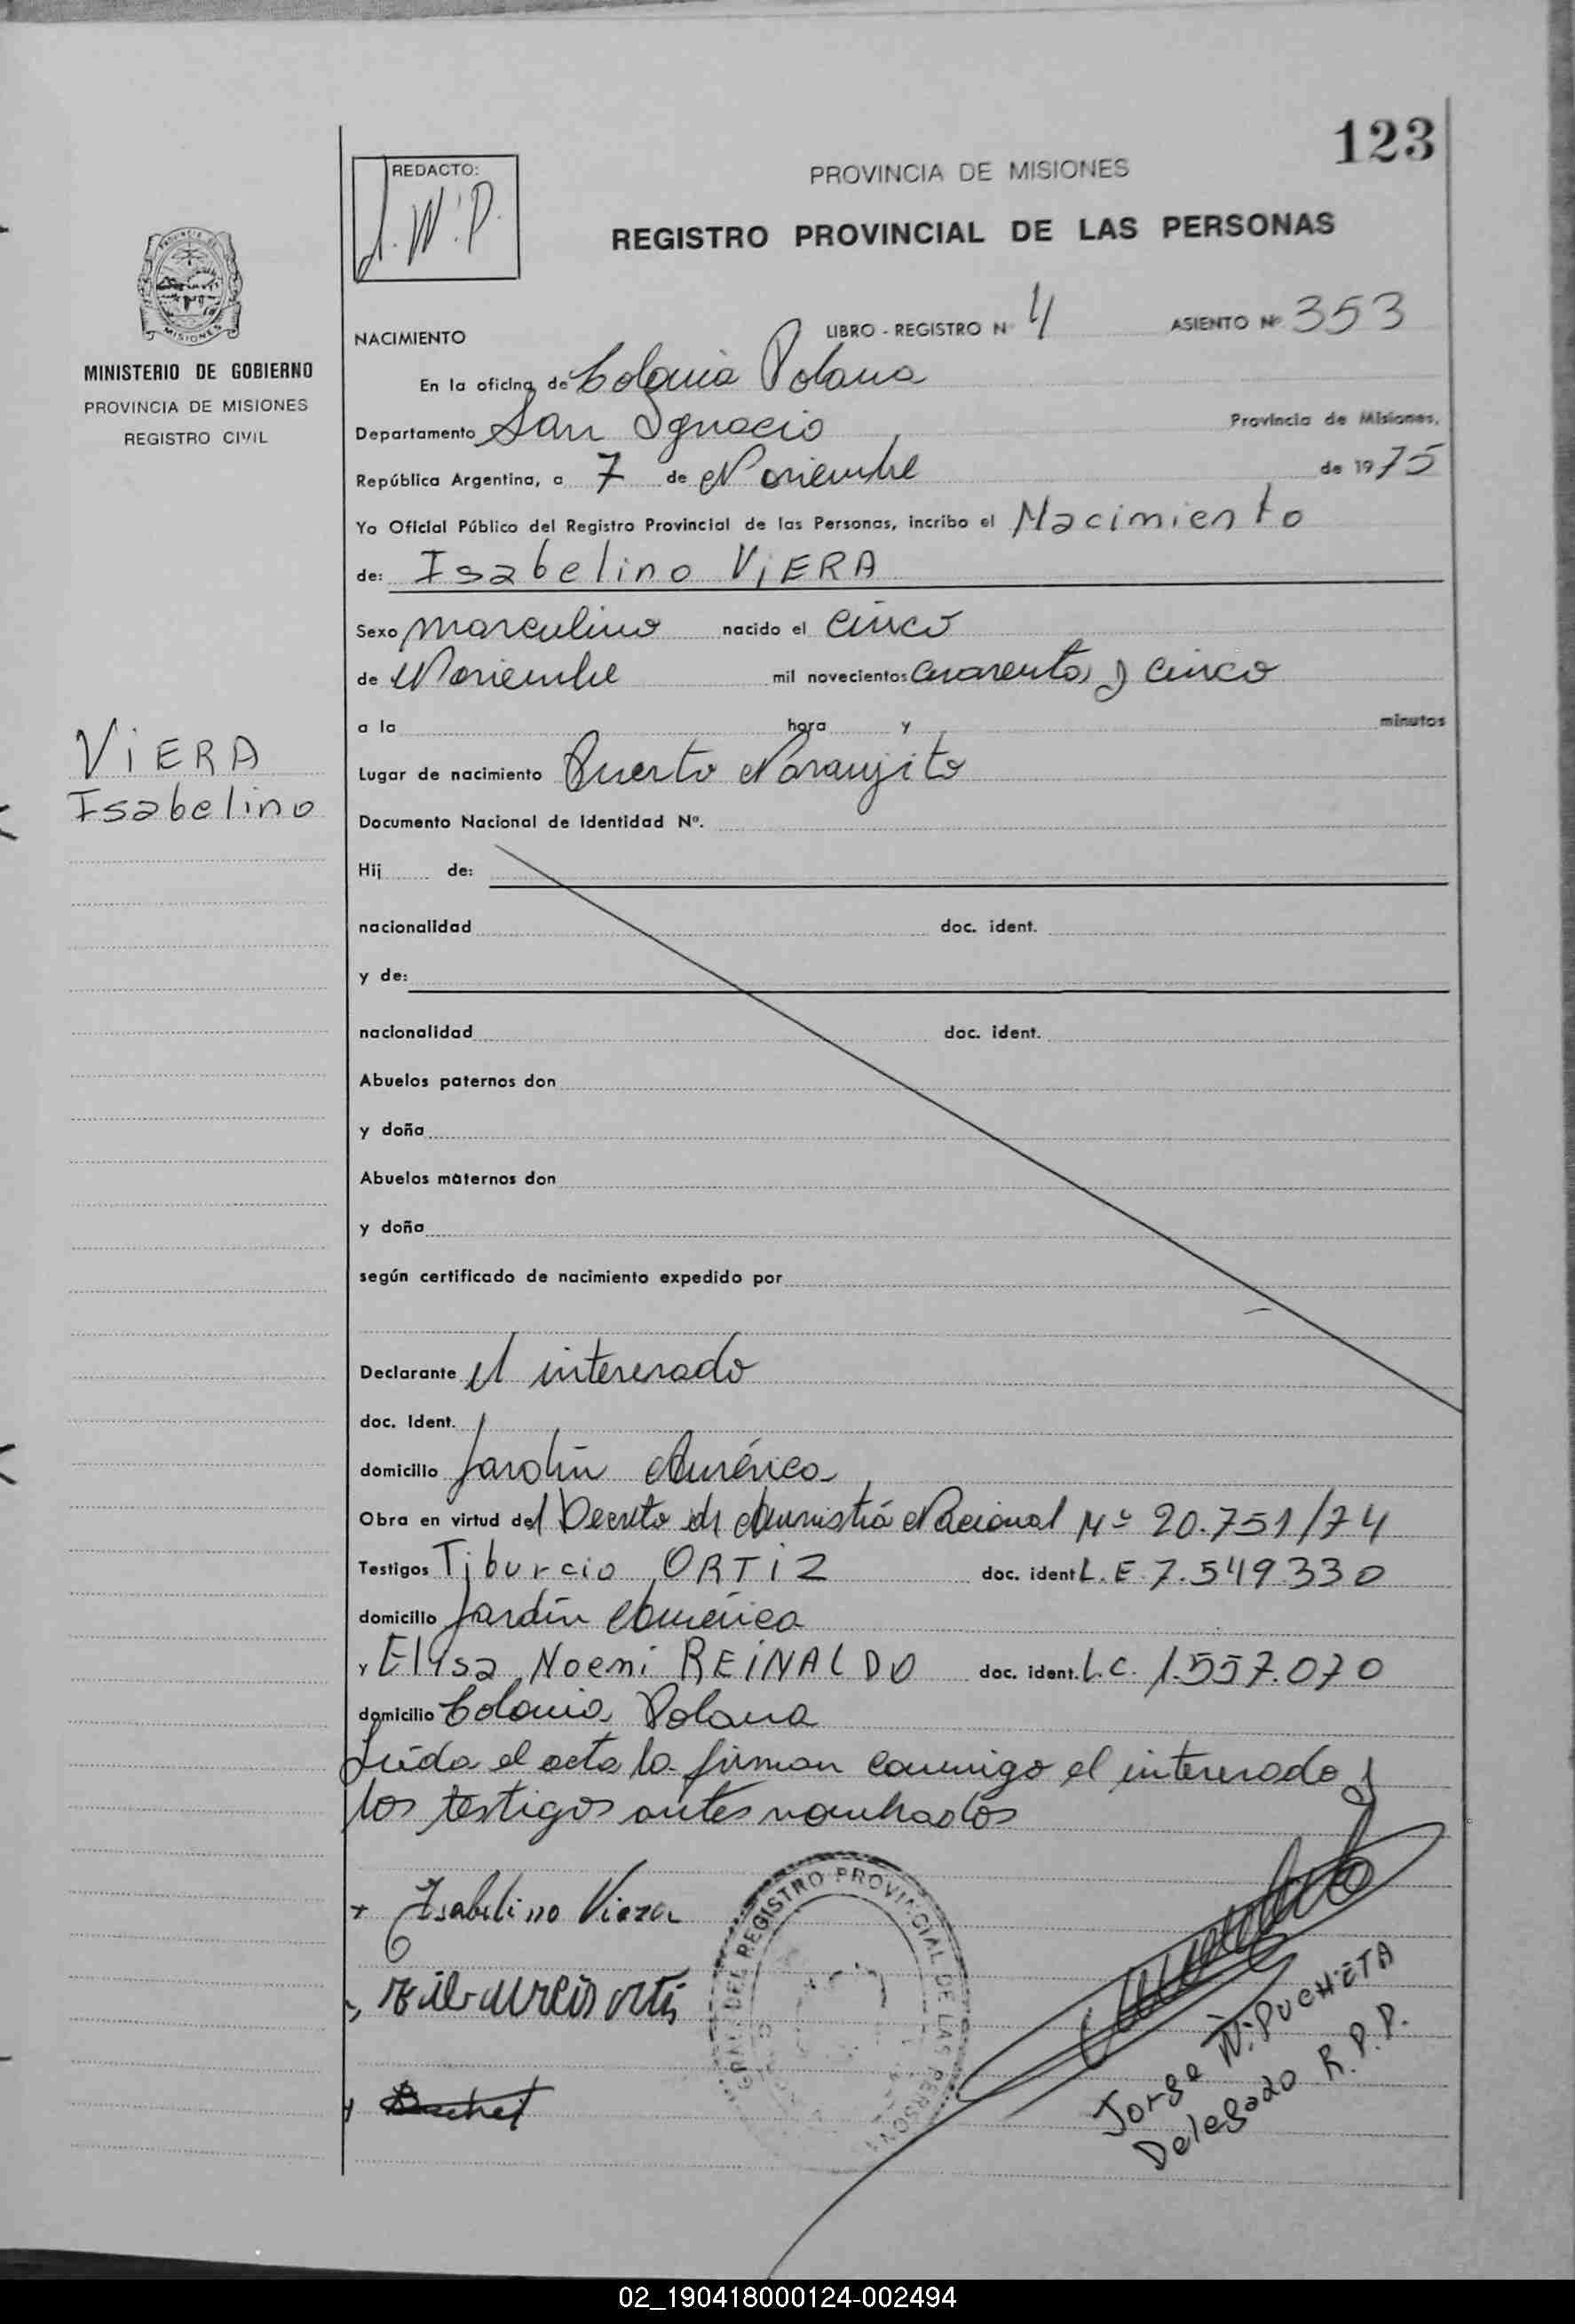 123
REDACTO:
J.W.P.
PROVINCIA DE MISIONES
REGISTRO PROVINCIAL DE LAS PERSONAS
MISIONES
MINISTERIO DE GOBIERNO
PROVINCIA DE MISIONES
REGISTRO CIVIL
NACIMIENTO LIBRO - REGISTRO Nº 4 ASIENTO Nº 353
En la oficina de Colonia Polana
Departamento San Ignacio Provincia de Misiones,
República Argentina, a 7 de Noviembre de 1975
Yo Oficial Público del Registro Provincial de las Personas, incribo el Nacimiento
de: Isabelino ViERA
Sexo masculino nacido el cinco
de Noviembre mil novecientos cuarenta y cinco
a la hora y minutos
VIERA
Isabelino
Lugar de nacimiento Puerto Naranjito
Documento Nacional de Identidad Nº.
Hij de:
nacionalidad doc. ident.
y de:
nacionalidad doc. ident.
Abuelos paternos don
y doña
Abuelos maternos don
y doña
según certificado de nacimiento expedido por
Declarante el interesado
doc. Ident.
domicilio Jardín América
Obra en virtud del Decreto de Amnistiá Nacional Nº 20.751/74
Testigos Tiburcio ORTIZ doc. ident L.E. 7.549.330
domicilio Jardín América
y Elisa Noemi REINALDO doc. ident. L.C. 1.557.070
domicilio Colonia Polana
Leída el acta la firman conmigo el interesado y
los testigos antes nombrados
Isabelino Viera
Tiburcio ortis
REGISTRO PROVINCIAL DE LAS PERSONAS
Jorge W. PUCHETA
Delegado R.P.P.
02_190418000124-002494